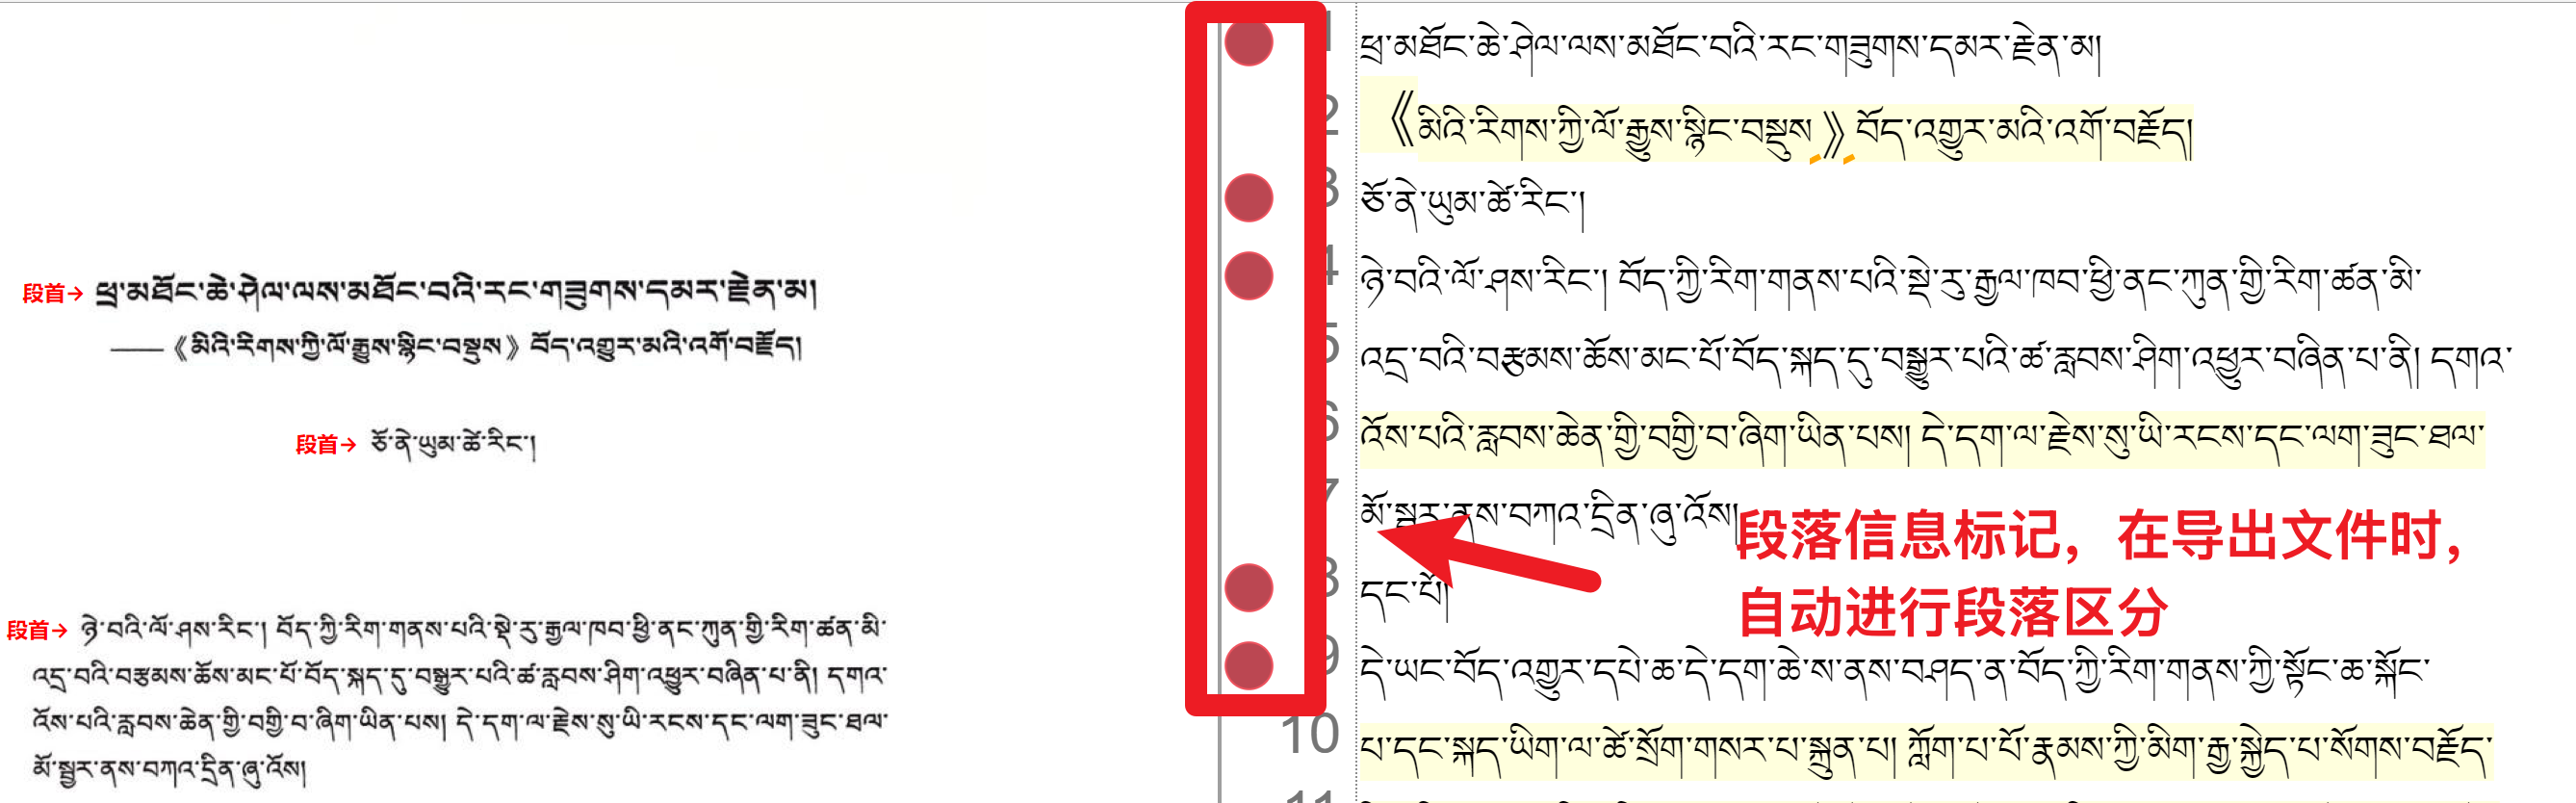 段首→ ཕྲ་མཐོང་ཆེ་ཤེལ་ལས་མཐོང་བའི་རང་གཟུགས་དམར་རྗེན་མ།
——《མིའི་རིགས་ཀྱི་ལོ་རྒྱུས་སྙིང་བསྡུས》བོད་འགྱུར་མའི་འགོ་བརྗོད།
段首→ ཅོ་ནེ་ཡུམ་ཚེ་རིང་།
段首→ ཉེ་བའི་ལོ་ཤས་རིང་། བོད་ཀྱི་རིག་གནས་པའི་སྡེ་རུ་རྒྱལ་ཁབ་ཕྱི་ནང་ཀུན་གྱི་རིག་ཚན་མི་
འདྲ་བའི་བརྩམས་ཆོས་མང་པོ་བོད་སྐད་དུ་བསྒྱུར་པའི་ཚ་རླབས་ཤིག་འཕྱུར་བཞིན་པ་ནི། དགའ་
འོས་པའི་རླབས་ཆེན་གྱི་བགྱི་བ་ཞིག་ཡིན་པས། དེ་དག་ལ་རྗེས་སུ་ཡི་རངས་དང་ལག་ཟུང་ཐལ་
མོ་སྦྱར་ནས་བཀའ་དྲིན་ཞུ་འོས།
1 ཕྲ་མཐོང་ཆེ་ཤེལ་ལས་མཐོང་བའི་རང་གཟུགས་དམར་རྗེན་མ།
2 《མིའི་རིགས་ཀྱི་ལོ་རྒྱུས་སྙིང་བསྡུས》བོད་འགྱུར་མའི་འགོ་བརྗོད།
3 ཅོ་ནེ་ཡུམ་ཚེ་རིང་།
4 ཉེ་བའི་ལོ་ཤས་རིང་། བོད་ཀྱི་རིག་གནས་པའི་སྡེ་རུ་རྒྱལ་ཁབ་ཕྱི་ནང་ཀུན་གྱི་རིག་ཚན་མི་
5 འདྲ་བའི་བརྩམས་ཆོས་མང་པོ་བོད་སྐད་དུ་བསྒྱུར་པའི་ཚ་རླབས་ཤིག་འཕྱུར་བཞིན་པ་ནི། དགའ་
6 འོས་པའི་རླབས་ཆེན་གྱི་བགྱི་བ་ཞིག་ཡིན་པས། དེ་དག་ལ་རྗེས་སུ་ཡི་རངས་དང་ལག་ཟུང་ཐལ་
7 མོ་སྦྱར་ནས་བཀའ་དྲིན་ཞུ་འོས།
段落信息标记，在导出文件时，
自动进行段落区分
8 དང་པོ།
9 དེ་ཡང་བོད་འགྱུར་དཔེ་ཆ་དེ་དག་ཆེ་ས་ནས་བཤད་ན་བོད་ཀྱི་རིག་གནས་ཀྱི་སྟོང་ཆ་སྐོང་
10 པ་དང་སྐད་ཡིག་ལ་ཚེ་སྲོག་གསར་པ་སྐྲུན་པ། ཀློག་པ་པོ་རྣམས་ཀྱི་མིག་རྒྱ་སྐྱེད་པ་སོགས་བརྗོད་
11